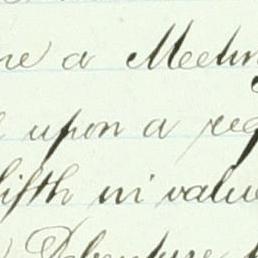 a Meetin
upon a req
fifth in value
Debenture